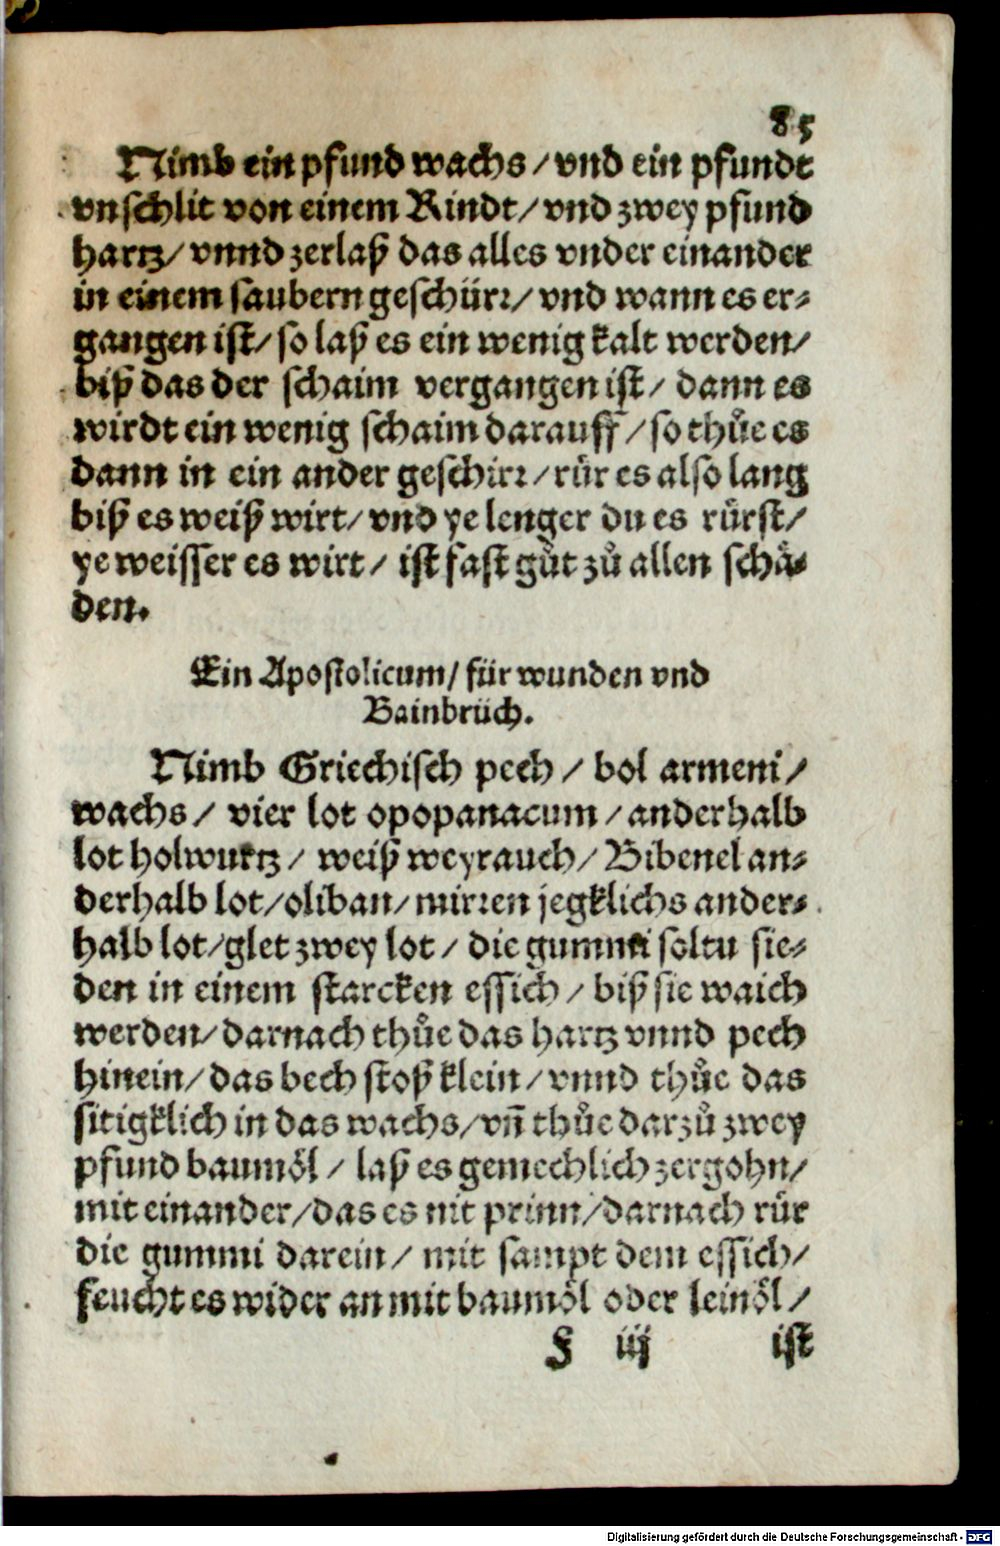 85
Nimb ein pfund wachs / vnd ein pfundt
vnschlit von einem Rindt / vnd zwey pfund
hartz / vnnd zerlaß das alles vnder einander
in einem saubern geschürr / vnd wann es er-
gangen ist / so laß es ein wenig kalt werden /
biß das der schaim vergangen ist / dann es
wirdt ein wenig schaim darauff / so thuͤe es
dann in ein ander geschirr / ruͤr es also lang
biß es weiß wirt / vnd ye lenger du es ruͤrst /
ye weisser es wirt / ist fast guͦt zuͦ allen schaͤ-
den.
Ein Apostolicum / für wunden vnd
Bainbrüch.
Nimb Griechisch pech / bol armeni /
wachs / vier lot opopanacum / anderhalb
lot holwurtz / weiß weyrauch / Bibenel an-
derhalb lot / oliban / mirren jegklichs ander-
halb lot / glet zwey lot / die gummi soltu sie-
den in einem starcken essich / biß sie waich
werden / darnach thuͤe das hartz vnnd pech
hinein / das bech stoß klein / vnnd thuͤe das
sitigklich in das wachs / vñ thuͤe darzuͦ zwey
pfund baumoͤl / laß es gemechlich zergohn /
mit einander / das es nit prinn / darnach ruͤr
die gummi darein / mit sampt dem essich /
feucht es wider an mit baumoͤl oder leinoͤl /
F iij ist
Digitalisierung gefördert durch die Deutsche Forschungsgemeinschaft - DFG